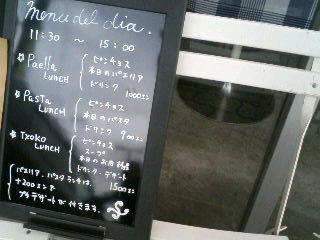 menu del día.
11:30 ～ 15:00
Paella LUNCH
ピンチョス
本日のパエリア
ドリンク
1000エン
PASTA LUNCH
ピンチョス
本日のパスタ
ドリンク 900エン
TXOKO LUNCH
ピンチョス
スープ
本日のお肉
ドリンク・デザート
1500エン
パエリア、パスタランチは、
+200エンで
プチデザートが付きます。